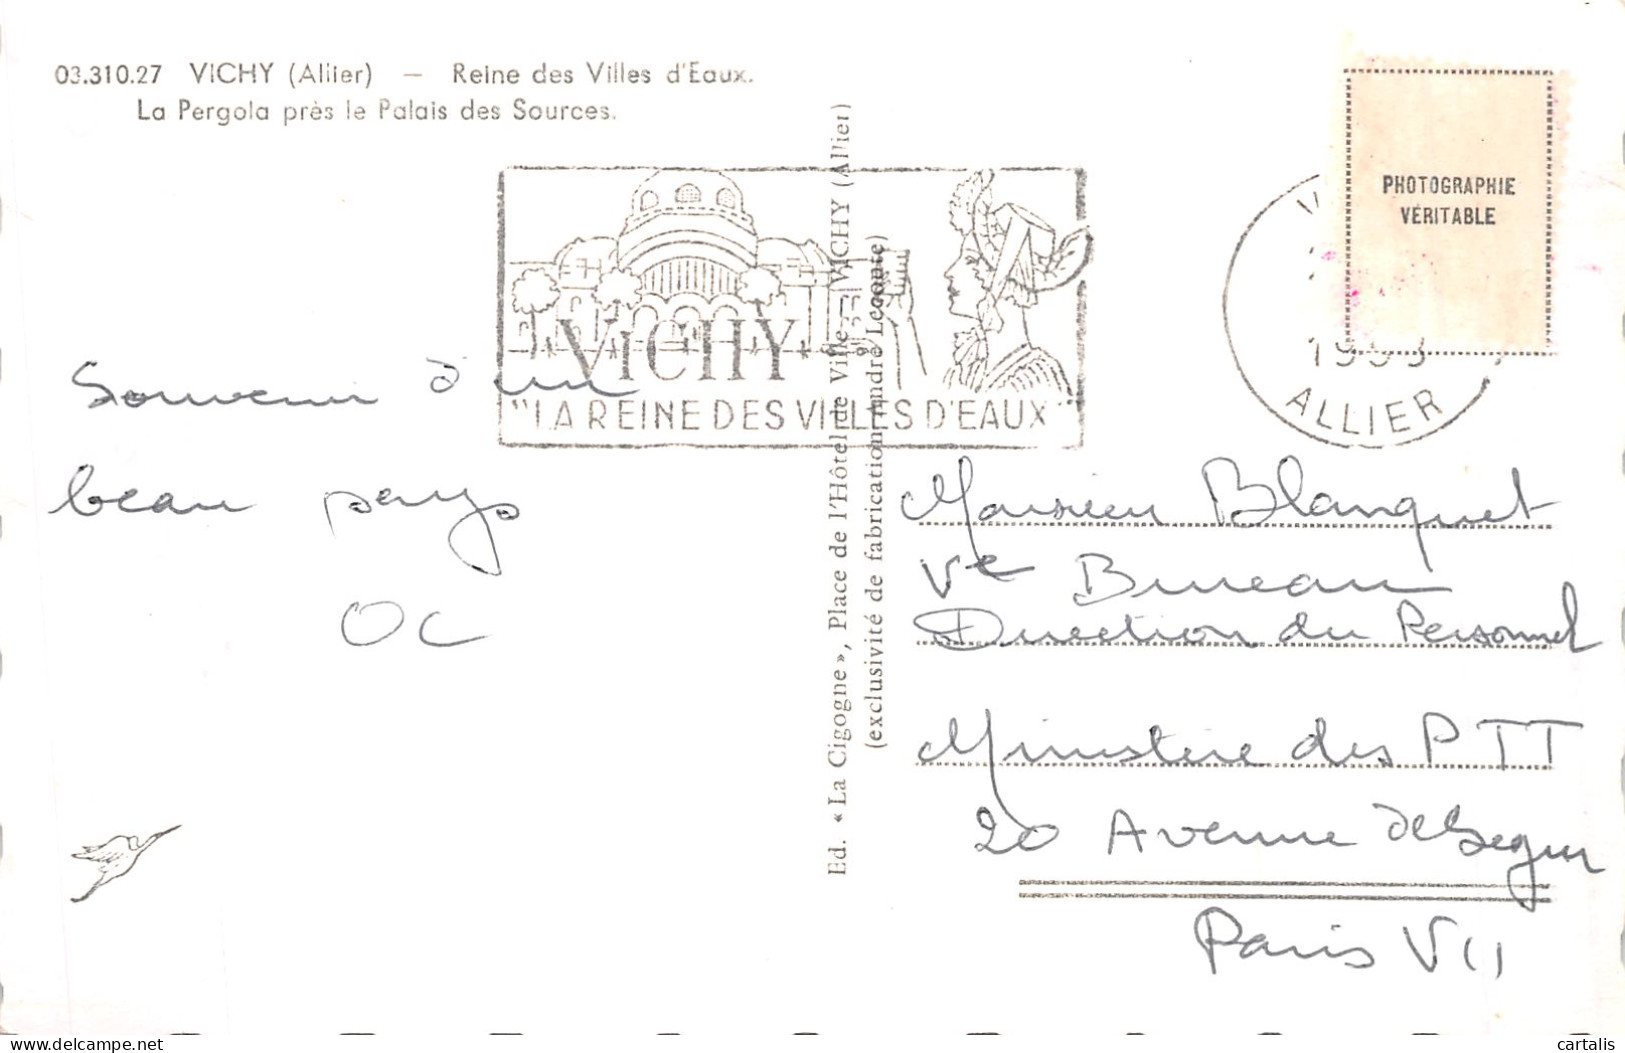 03.310.27 VICHY (Allier) — Reine des Villes d'Eaux.
La Pergola près le Palais des Sources.
PHOTOGRAPHIE
VÉRITABLE
VICHY
"LA REINE DES VILLES D'EAUX"
ALLIER
Souvenir d'un
beau pays
OC
Ed. « La Cigogne », Place de l'Hôtel de Ville — VICHY (Allier)
(exclusivité de fabrication André Leconte)
Monsieur Blanquet
Ve Bureau
Direction du Personnel
Ministère des PTT
20 Avenue de Segur
Paris VII
cartalis